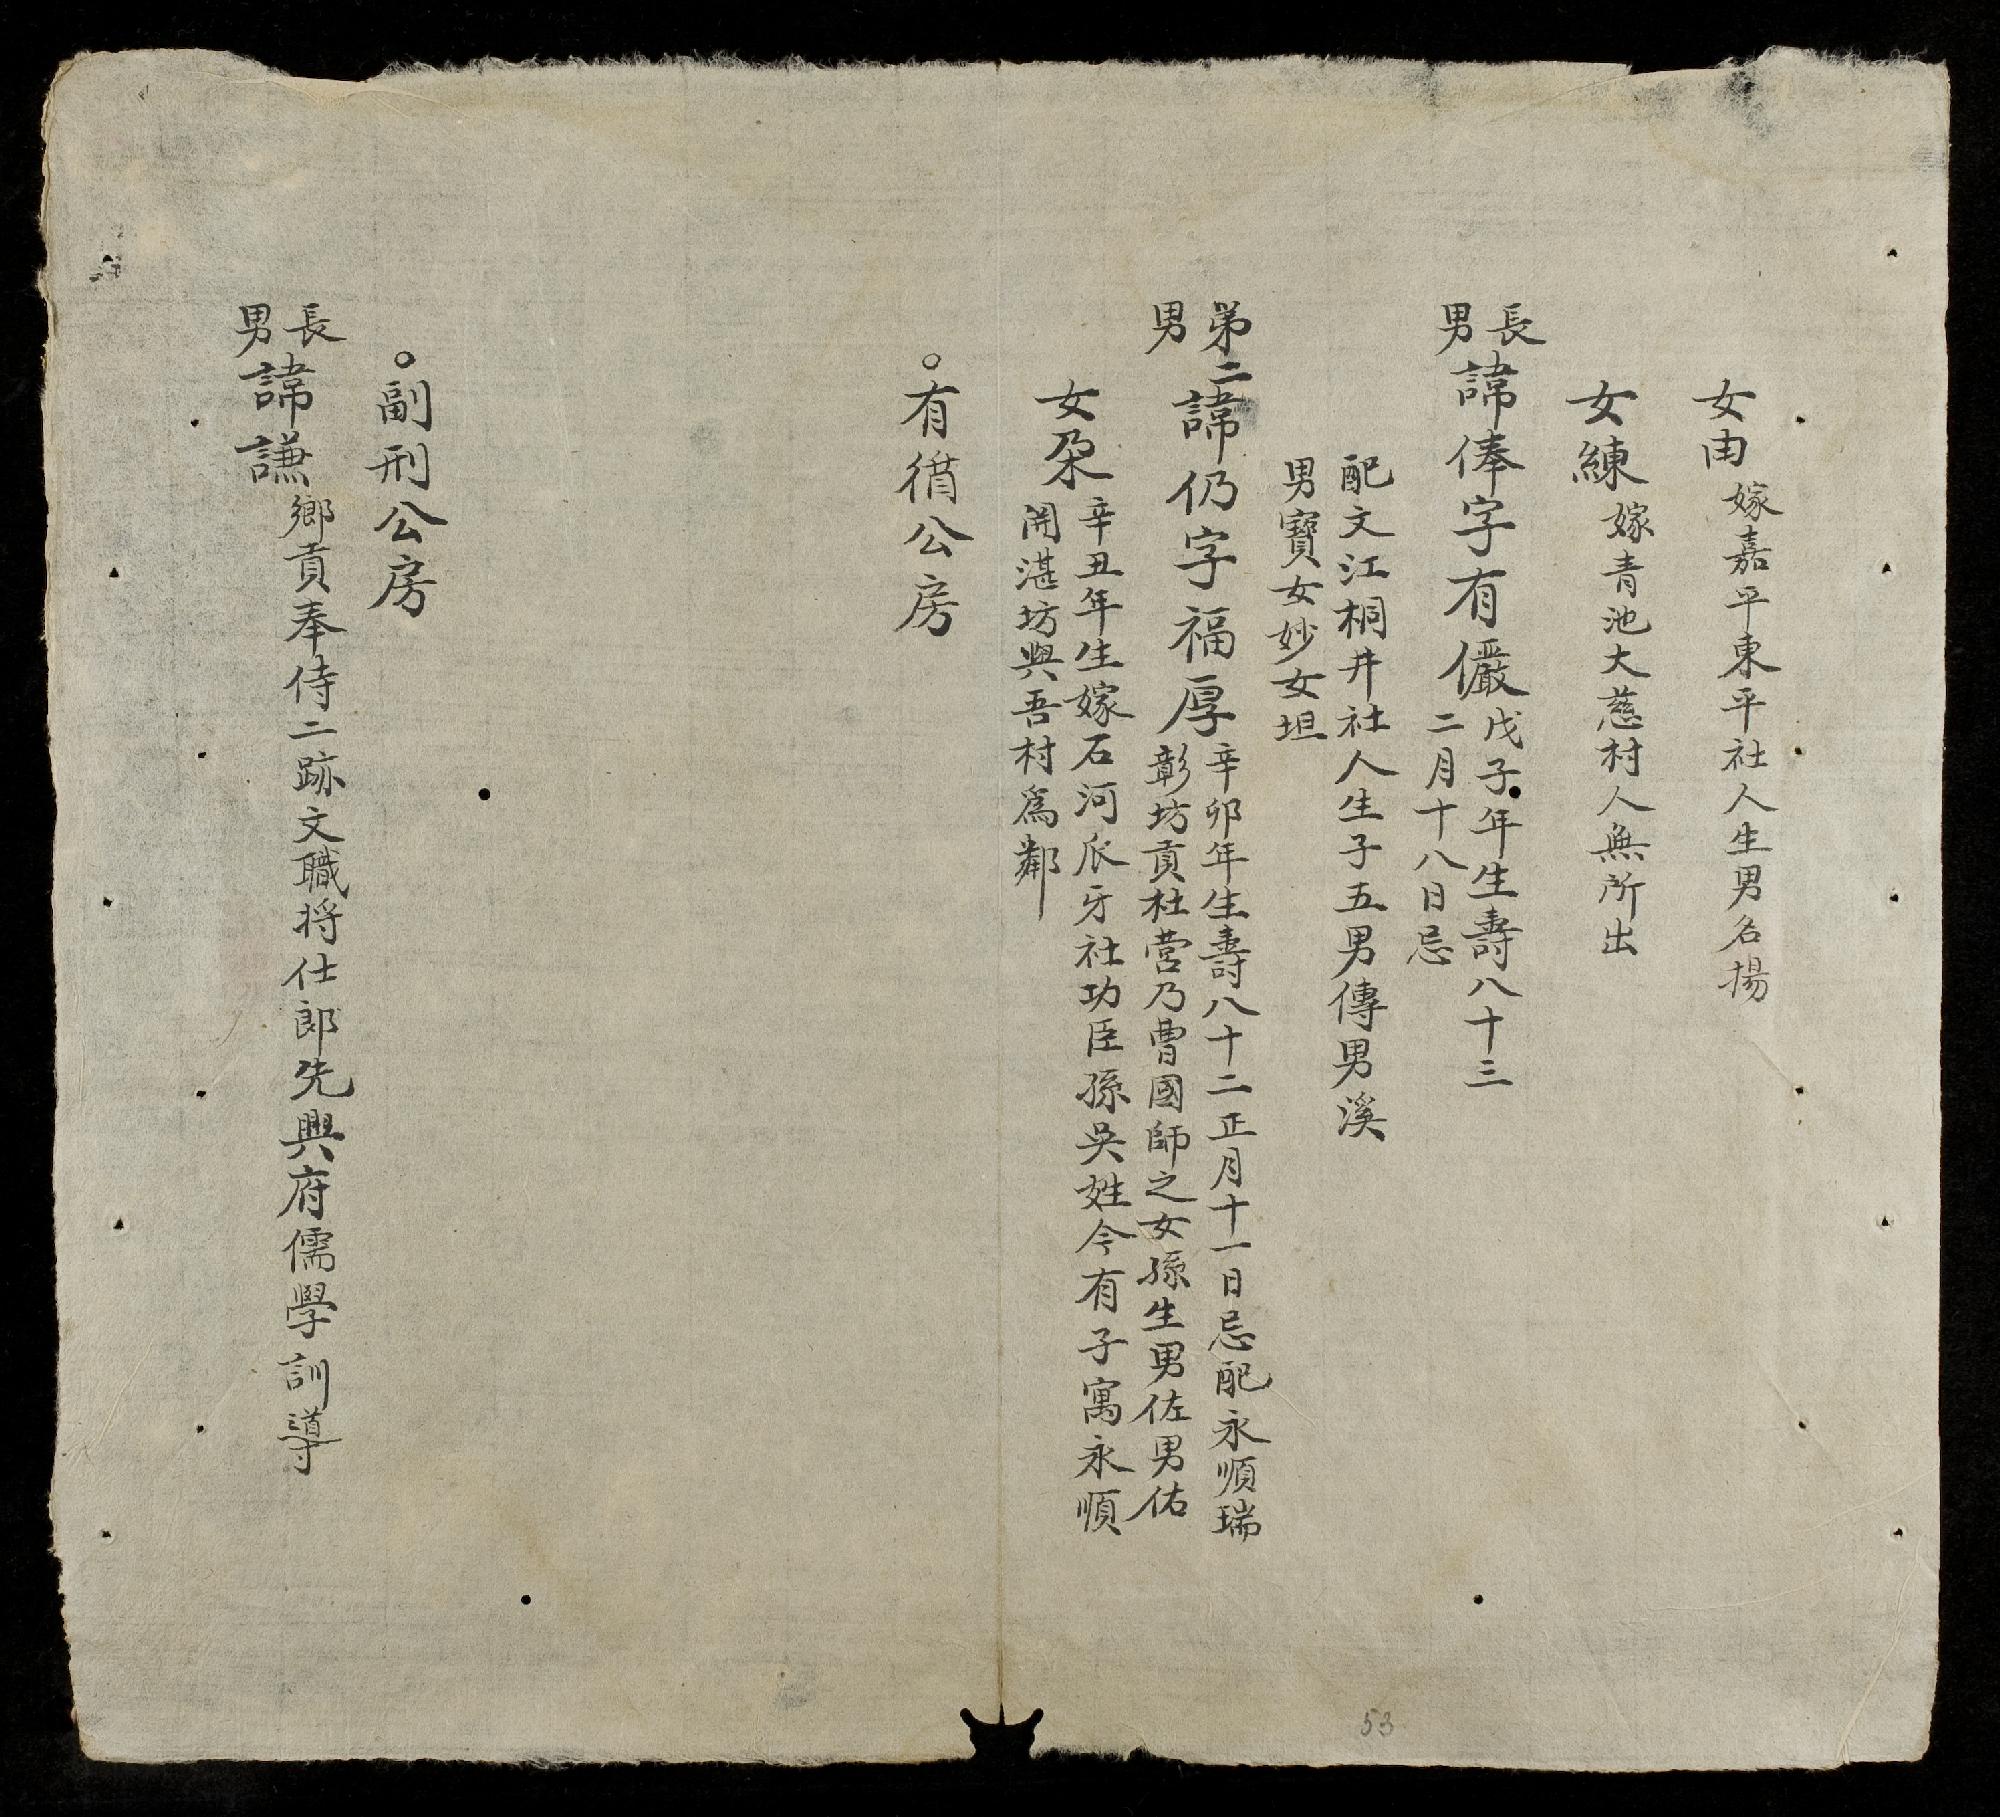 女由嫁嘉平東平社人生男名揚
女練嫁青池大慈村人無所出
長男諱俸字有儼戊子年生壽八十三
二月十八日忌
配文江桐井社人生子五男傳男溪
男寶女妙女坦
第二男諱仍字福厚辛卯年生壽八十二正月十一日忌配永順瑞
彰坊貢杜营乃曹國師之女孫生男佐男佑
女朶辛丑年生嫁石河瓜牙社功臣孫吳姓今有子寓永順
閞湛坊與吾村爲鄰
○有循公房
○副刑公房
長男諱謙鄉貢奉侍二跡文職将仕郎先興府儒學訓導
53